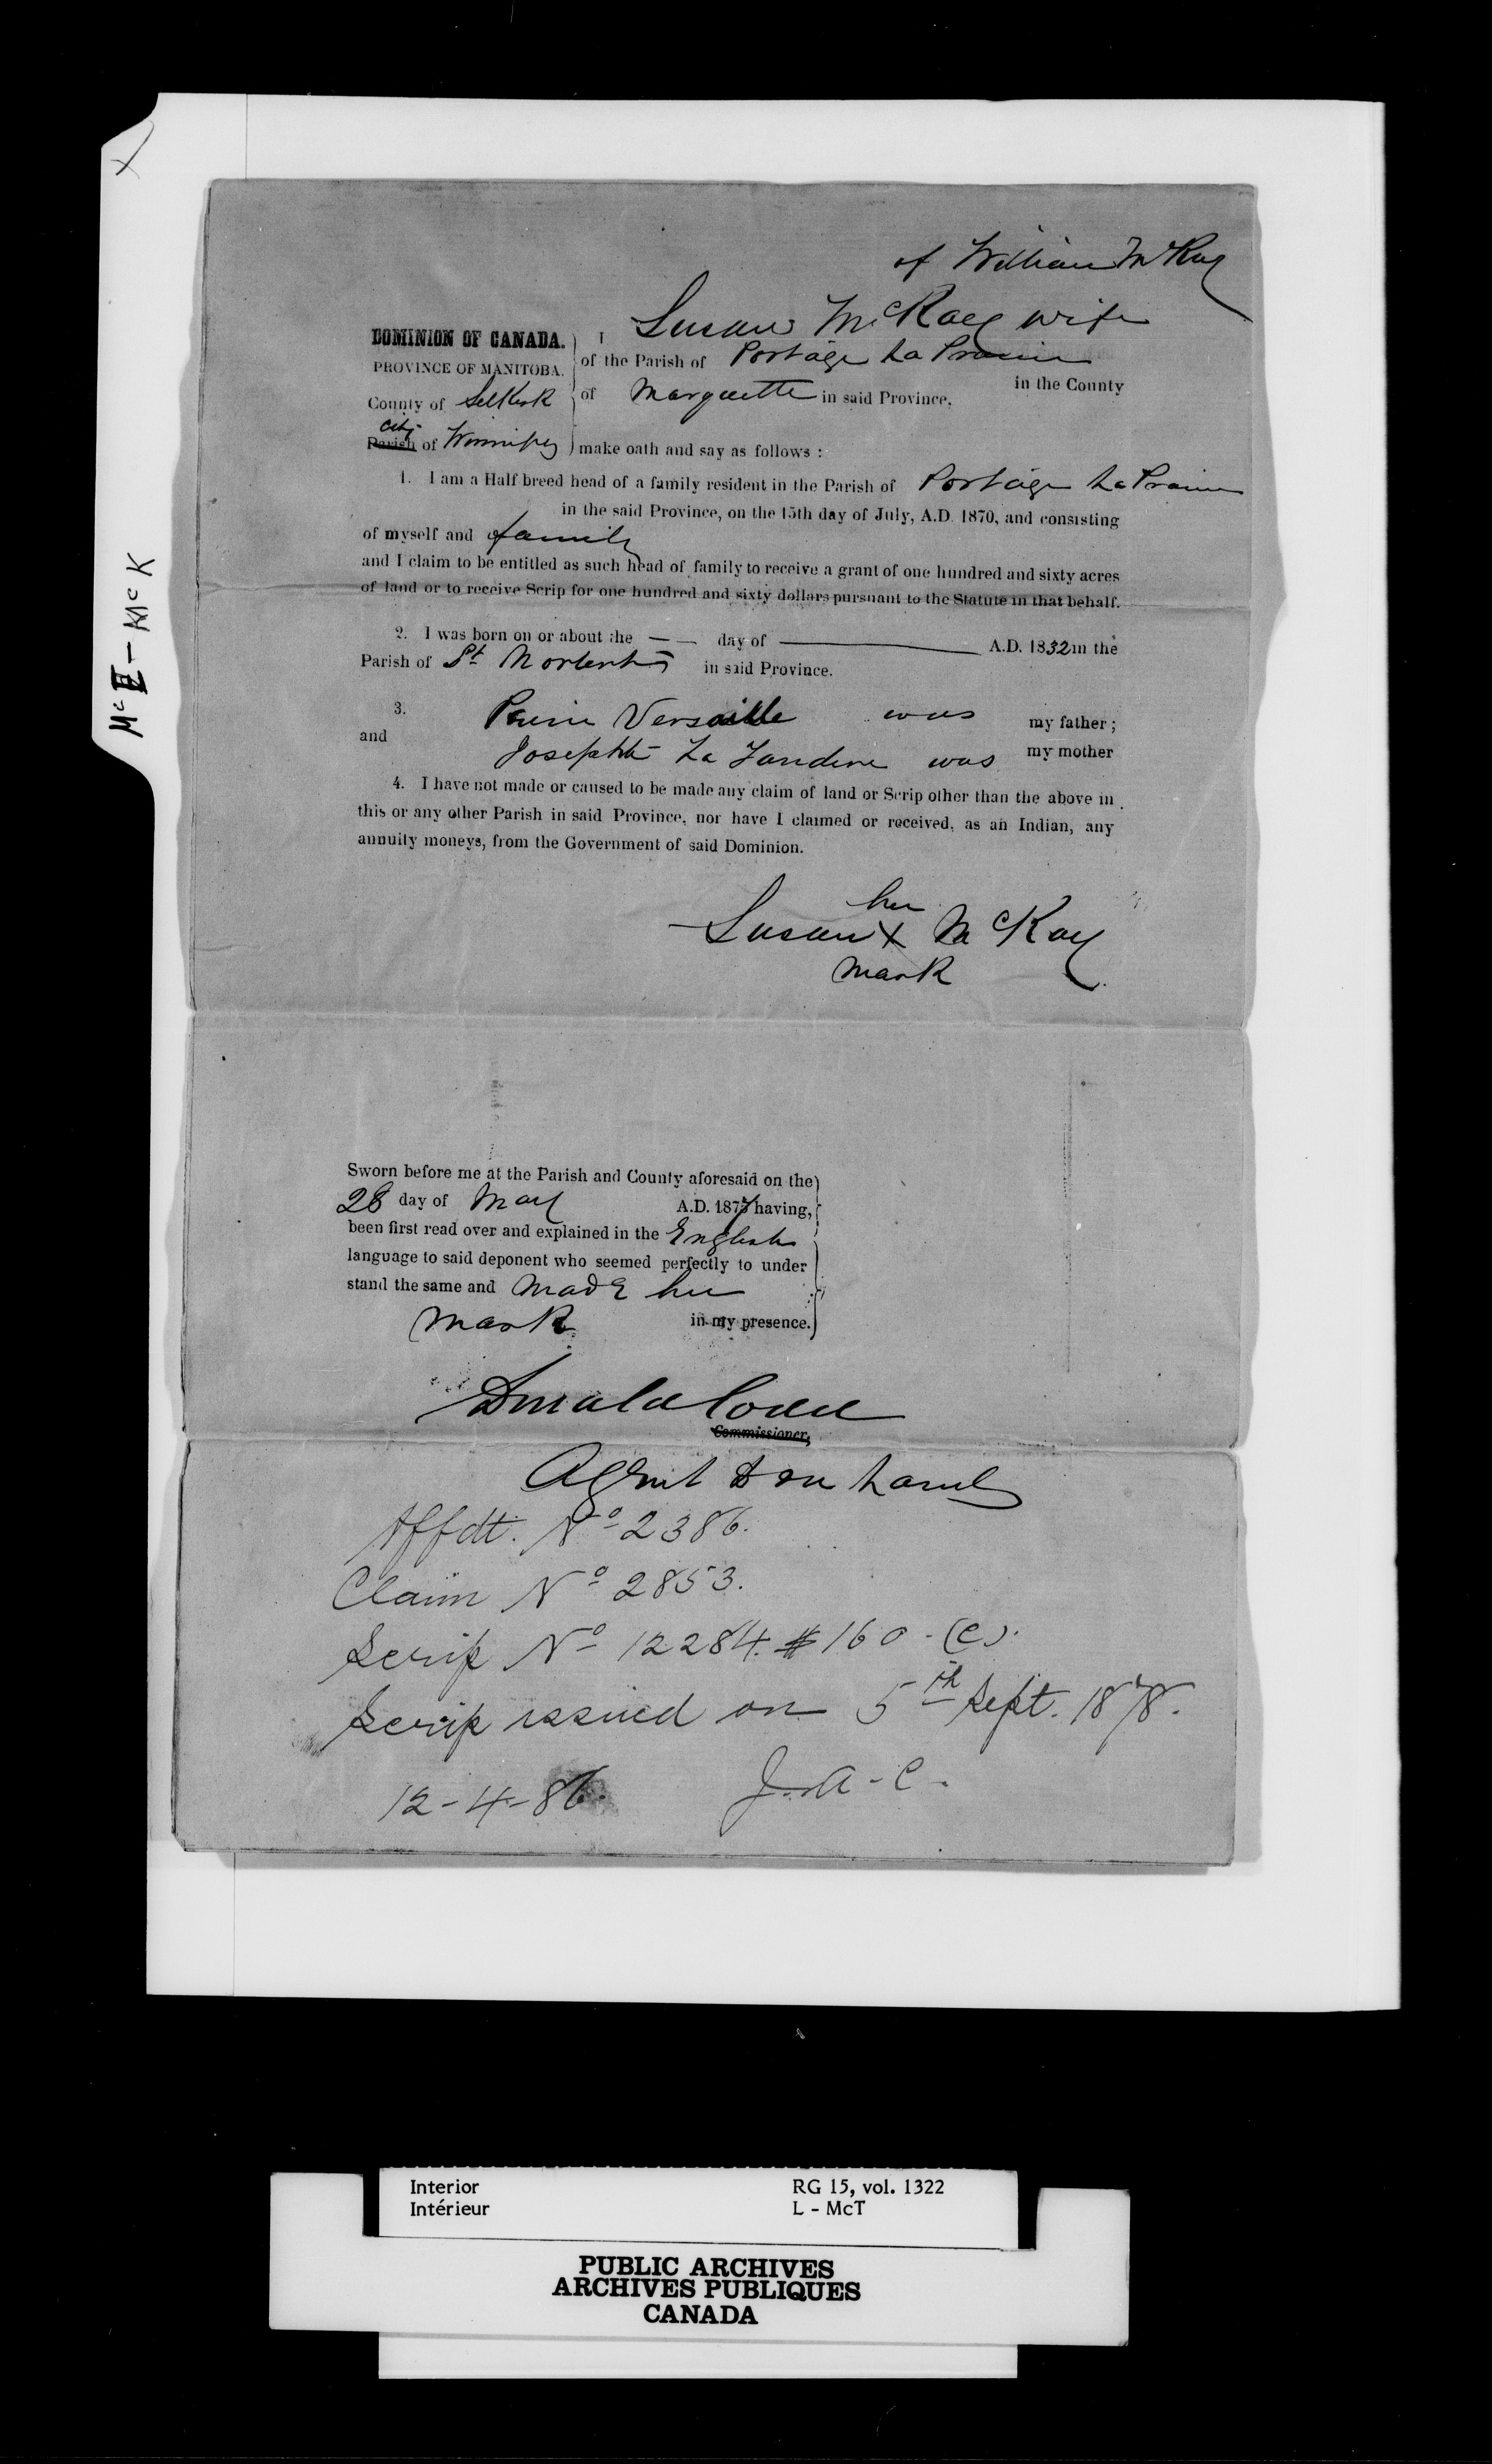 of William McKay
DOMINION OF CANADA.
PROVINCE OF MANITOBA.
County of Selkirk
City
Parish of Winnipeg
I Susan McKay wife
of the Parish of Portage La Prairie
in the County
of Marquette in said Province,
make oath and say as follows :
1. I am a Half breed head of a family resident in the Parish of Portage La Prairie
in the said Province, on the 15th day of July, A.D. 1870, and consisting
of myself and family
and I claim to be entitled as such head of family to receive a grant of one hundred and sixty acres
of land or to receive Scrip for one hundred and sixty dollars pursuant to the Statute in that behalf.
2. I was born on or about the — — day of — A.D. 1832 in the
Parish of St Norbert in said Province.
3. Pierre Versaille was my father ;
and Josephte La was my mother
4. I have not made or caused to be made any claim of land or Scrip other than the above in
this or any other Parish in said Province, nor have I claimed or received, as an Indian, any
annuity moneys, from the Government of said Dominion.
her
Susan X McKay
mark
Sworn before me at the Parish and County aforesaid on the
28 day of May A.D. 1877 having,
been first read over and explained in the English
language to said deponent who seemed perfectly to under
stand the same and made her
mark in my presence.
Donald Codd
Commissioner,
Agent Dom Lands
Affdt. No 2386.
Claim No 2853.
Scrip No 12284. $160 - (C).
Scrip issued on 5th Sept. 1878.
12-4-86. J. A - C -
McE - McK
X
Interior
Intérieur
RG 15, vol. 1322
L - McT
PUBLIC ARCHIVES
ARCHIVES PUBLIQUES
CANADA